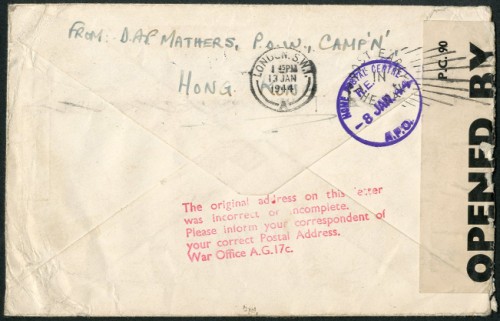 FROM D.A.S MATHERS, P.O.W., CAMP 'N'
HONG KONG
LONDON. S.W.1.
1 45PM
13 JAN
1944
A
POST EARLY
IN
THE
HOME POSTAL CENTRE
R.E.
-8 JAN. 44
A.P.O.
The original address on this letter
was incorrect or incomplete.
Please inform your correspondent of
your correct Postal Address.
War Office A.G.17c.
P.C. 90
OPENED BY